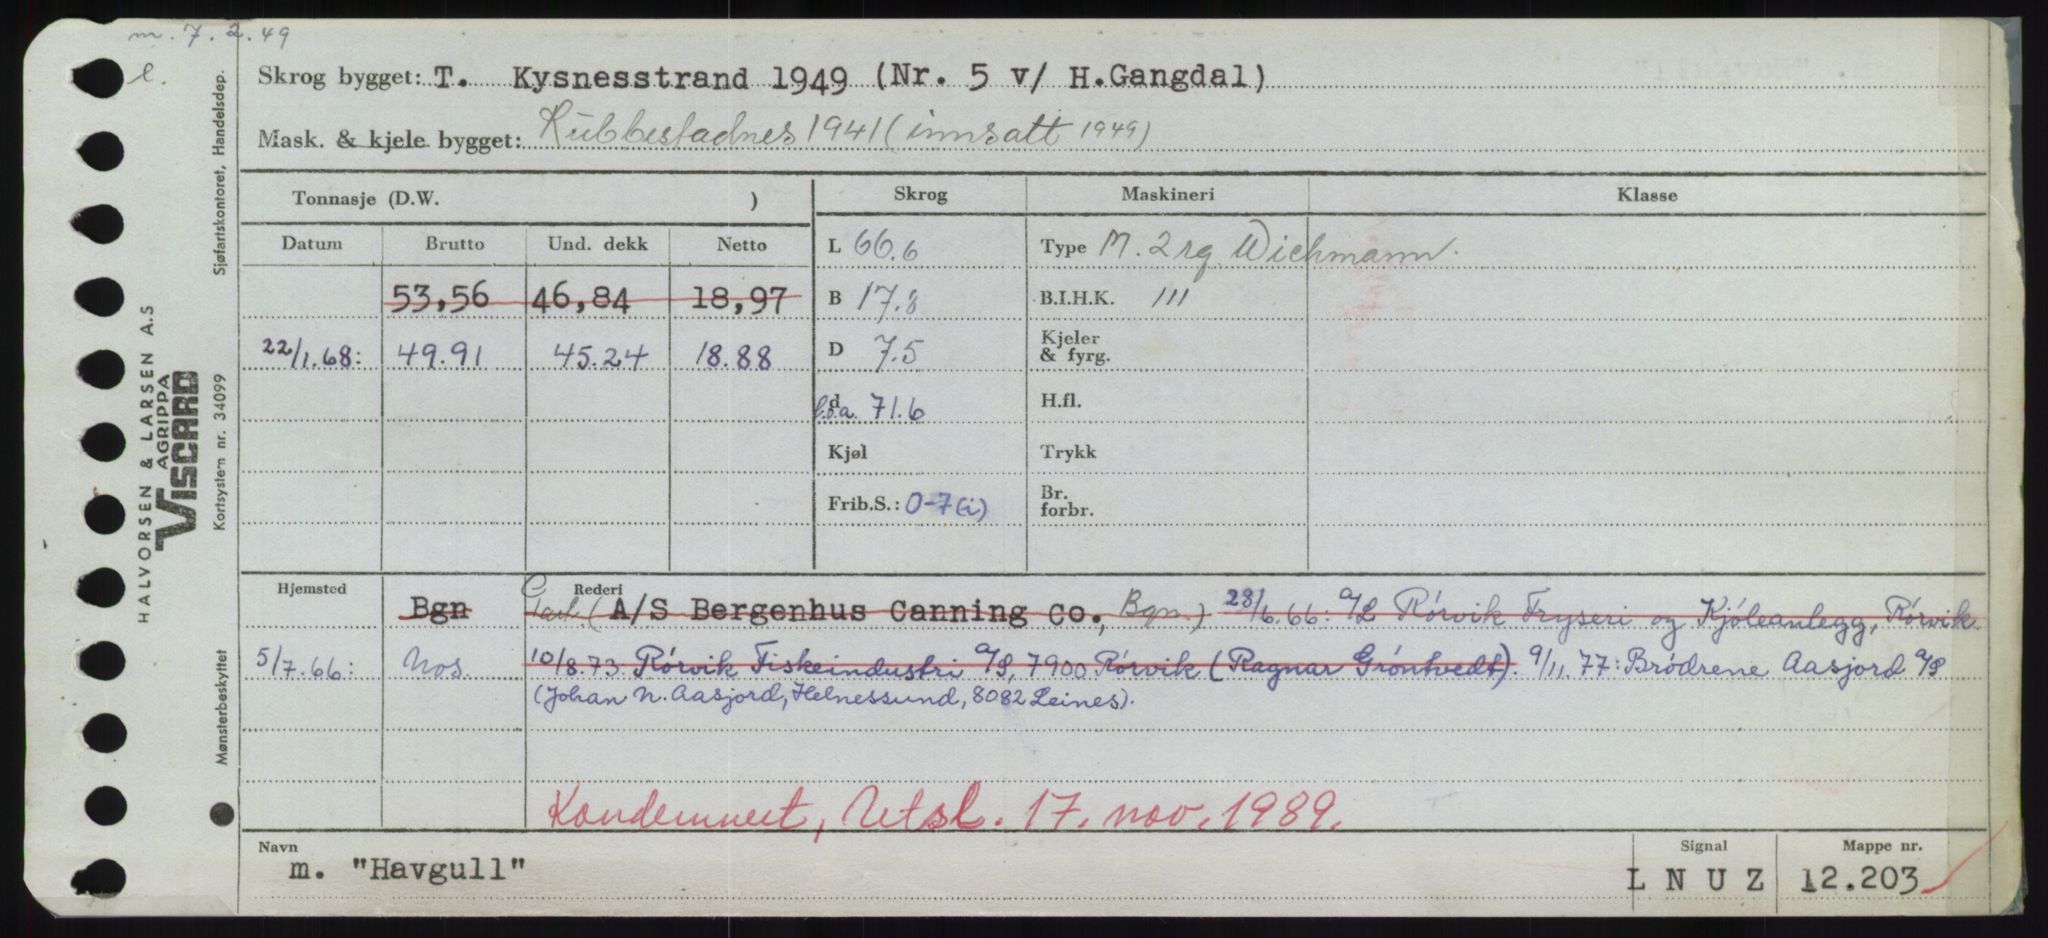 m. 7.2.49
l.
Skrog bygget: T. Kysnesstrand 1949 (Nr. 5 v/ H.Gangdal)
Mask. & kjele bygget: Rubbestadnes 1941 (innsatt 1949)
Tonnasje (D.W. )
Skrog
Maskineri
Klasse
Datum Brutto Und. dekk Netto
L 66.6
Type M. 2 rg. Wichmann.
53,56 46,84 18,97
B 17.8
B.I.H.K. 111
22/1.68: 49.91 45.24 18.88
D 7.5
Kjeler
& fyrg.
d l.o.a. 71.6
H.fl.
Kjøl
Trykk
Frib.S.: 0-7(i)
Br.
forbr.
Hjemsted
Rederi
Bgn (A/S Bergenhus Canning Co., Bgn.) 28/6.66: A/L Rörvik Fryseri og Kjöleanlegg, Rörvik
5/7.66: Nos. 10/8.73 Rörvik Fiskeindustri A/S, 7900 Rörvik (Ragnar Gröntvedt). 9/11.77: Brödrene Aasjord A/S
(Johan N. Aasjord, Helnessund, 8082 Leines).
Kondemnert, Utsl. 17. nov. 1989.
Navn
m. "Havgull"
Signal
L N U Z
Mappe nr.
12.203
HALVORSEN & LARSEN A.S
AGRIPPA
VISCARD
Sjøfartskontoret, Handelsdep.
Kortsystem nr. 34099
Mønsterbeskyttet